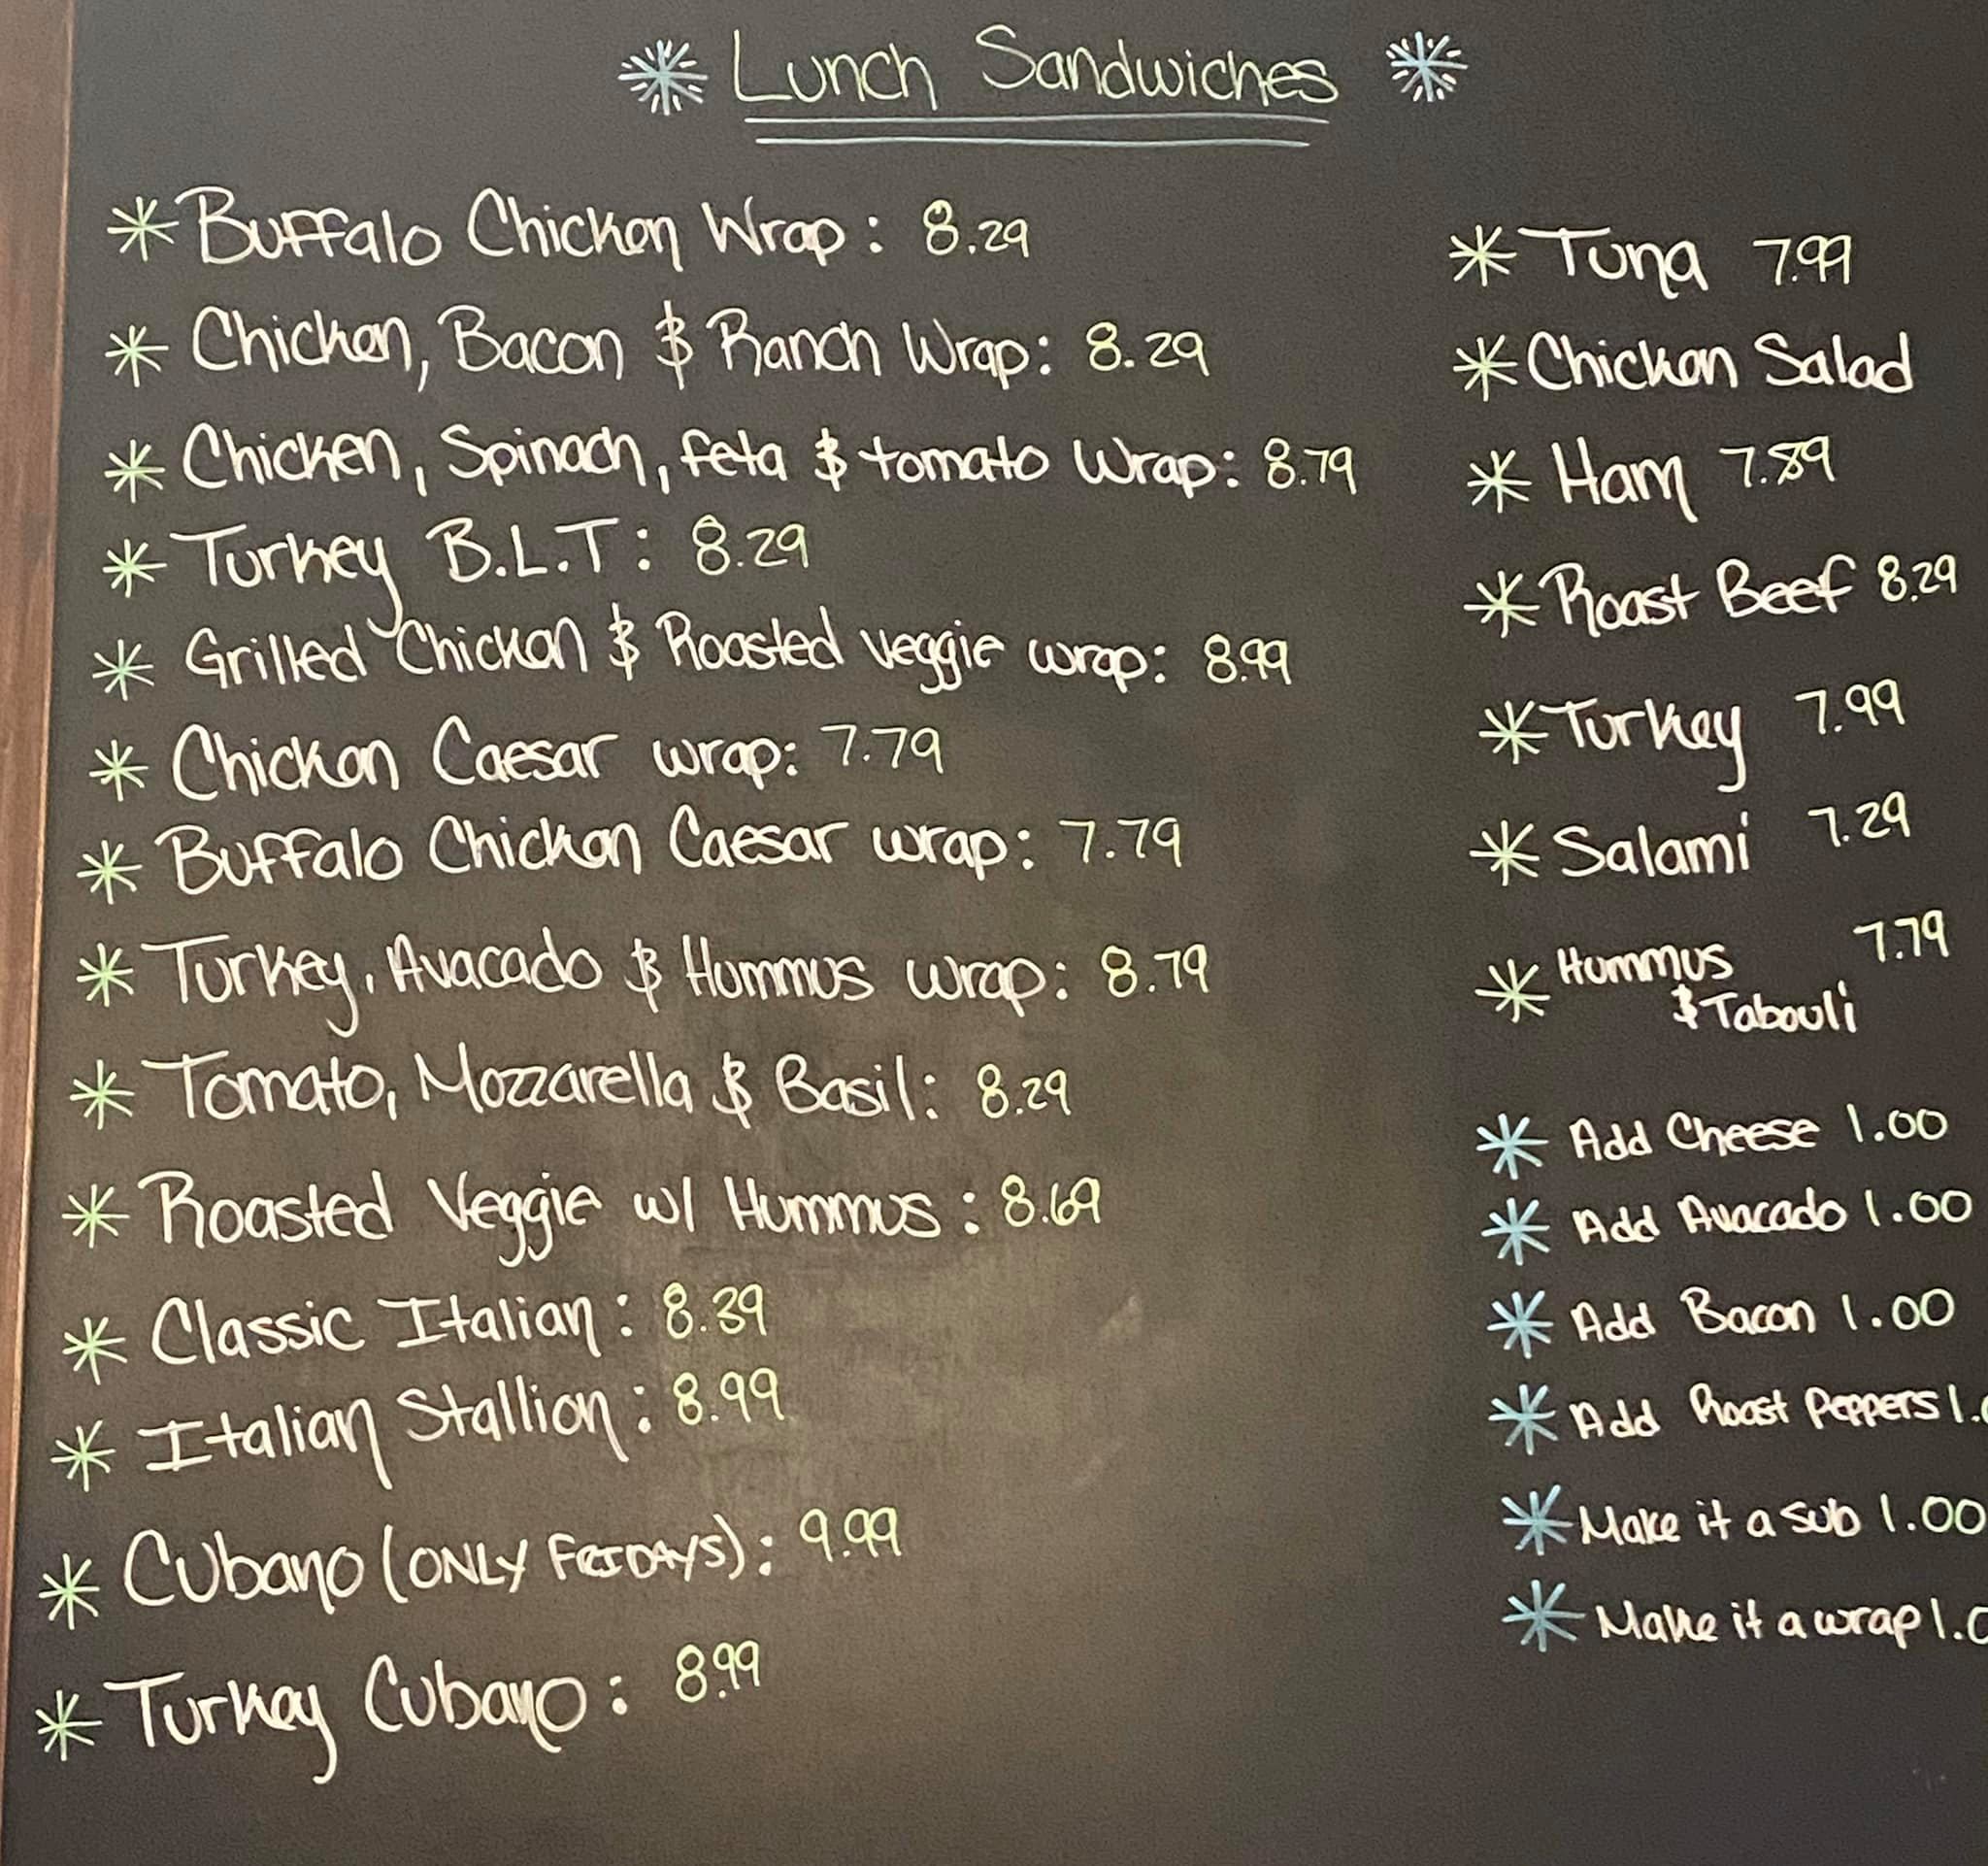 Lunch Sandwiches
* Buffalo Chicken Wrap: 8.29
* Chicken, Bacon & Ranch Wrap: 8.29
* Chicken, Spinach, feta & tomato Wrap: 8.79
* Turkey B.L.T: 8.29
* Grilled Chicken & Roasted veggie wrap: 8.99
* Chicken Caesar wrap: 7.79
* Buffalo Chicken Caesar wrap: 7.79
* Turkey, Avacado & Hummus wrap: 8.79
* Tomato, Mozzarella & Basil: 8.29
* Roasted Veggie w/ Hummus: 8.69
* Classic Italian: 8.39
* Italian Stallion: 8.99
* Cubano (ONLY FRIDAYS): 9.99
* Turkey Cubano: 8.99
* Tuna 7.99
* Chicken Salad
* Ham 7.89
* Roast Beef 8.29
* Turkey 7.99
* Salami 7.29
* Hummus 7.79
& Tabouli
* Add Cheese 1.00
* Add Avacado 1.00
* Add Bacon 1.00
* Add Roast Peppers 1.
* Make it a sub 1.00
* Make it a wrap 1.0